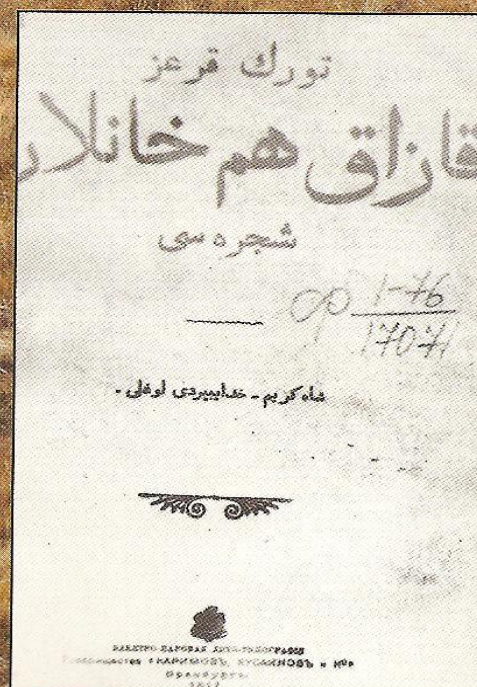 تورك قرغز
قازاق هم خانلار
شجره سی
ф 1-76
17071
شاه كريم - خدايبردی اوغلی -
ЭЛЕКТРО-ПАРОВАЯ ЛИТО-ТИПОГРАФІЯ
Товарищества „КАРИМОВЪ, ХУСАИНОВЪ и К°“
Оренбургъ